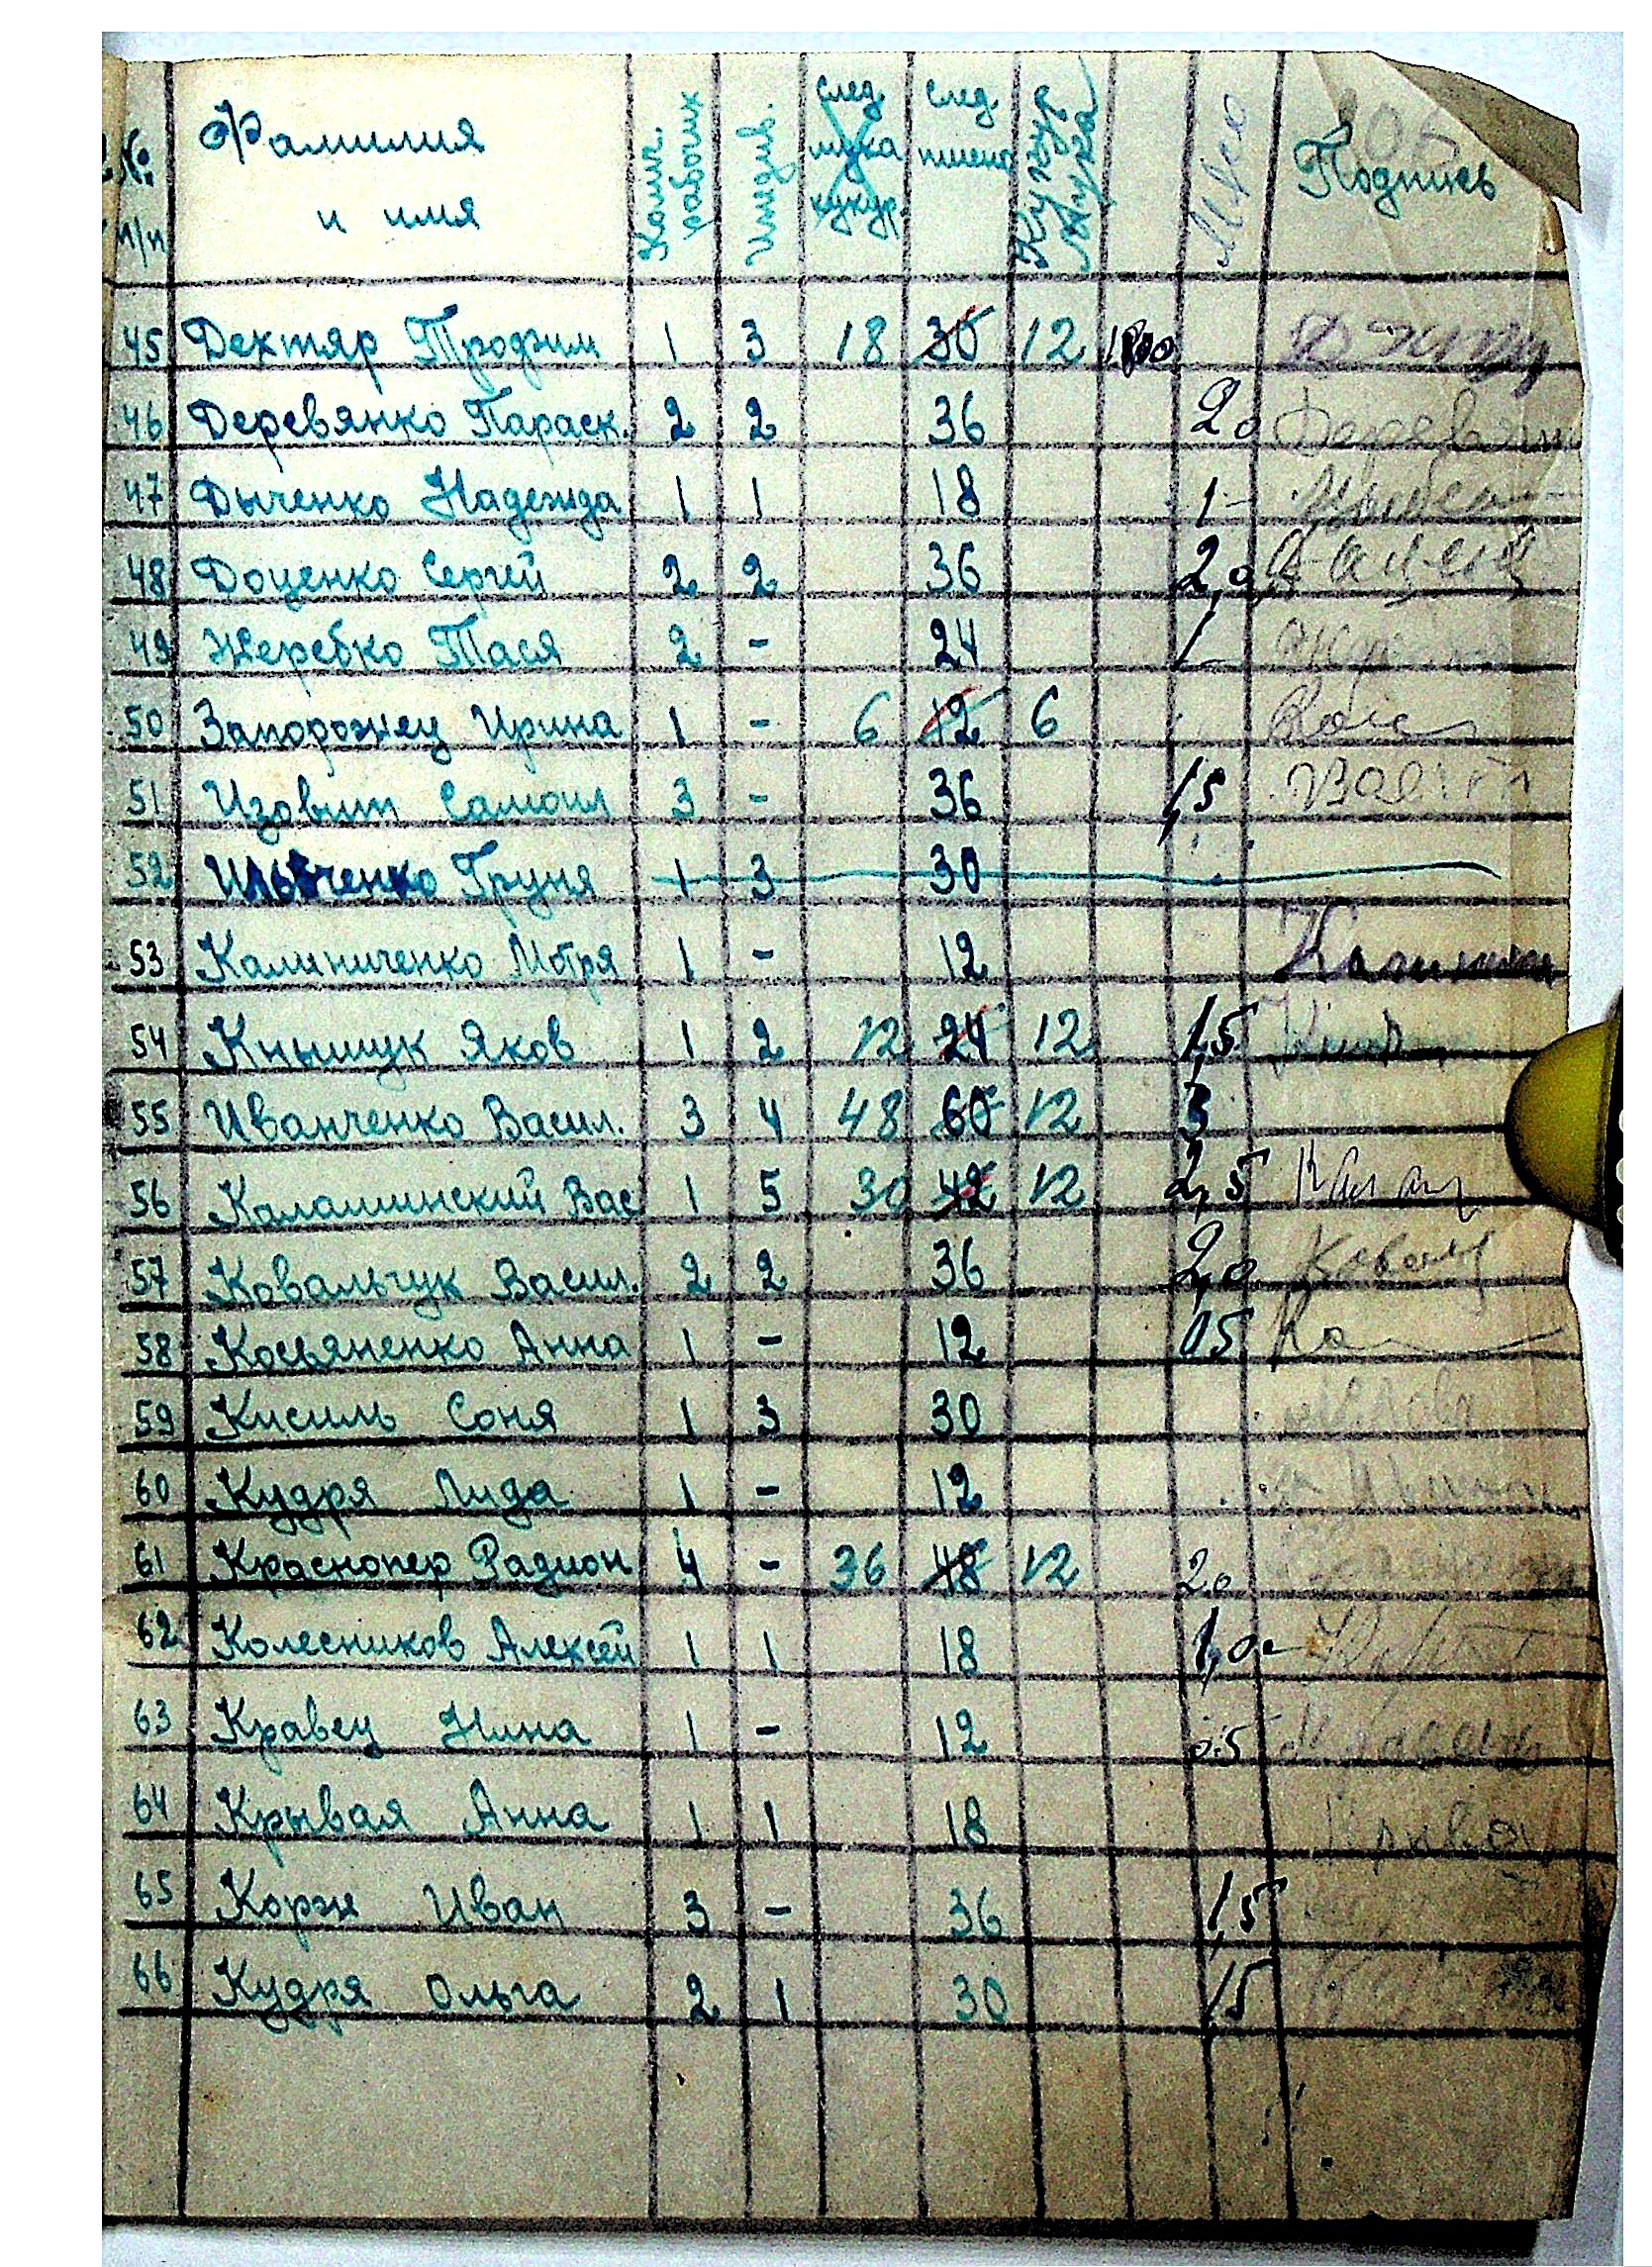 № п/п Фамилия и имя Колич. рабочих Иждив. след. мука кукур. след. пшено Кукур Мука Мясо Подпись
45 Дехтяр Трофим 1 3 18 30 12
46 Деревянко Параск. 2 2 36 2,0
47 Дыченко Надежда 1 1 18 1-
48 Доценко Сергей 2 2 36 2,0
49 Жеребко Тася 2 - 24 1-
50 Запорожец Ирина 1 - 6 12 6
51 Изовит Самоил 3 - 36 1,5
52 Ильченко Груня 1 3 30
53 Калиниченко Мотря 1 - 12
54 Кнышук Яков 1 2 12 24 12 1,5
55 Иванченко Васил. 3 4 48 60 12 3
56 Каламинский Вас 1 5 30 42 12 2,5
57 Ковальчук Васил. 2 2 36 2,0
58 Косьяненко Анна 1 - 12 05
59 Кисиль Соня 1 3 30
60 Кудря Лида 1 - 12
61 Краснопер Радион 4 - 36 48 12 2.0
62 Колесников Алексей 1 1 18 1,0
63 Кравец Нина 1 - 12 0.5
64 Крывая Анна 1 1 18
65 Корж Иван 3 - 36 1,5
66 Кудря Ольга 2 1 30 1,5